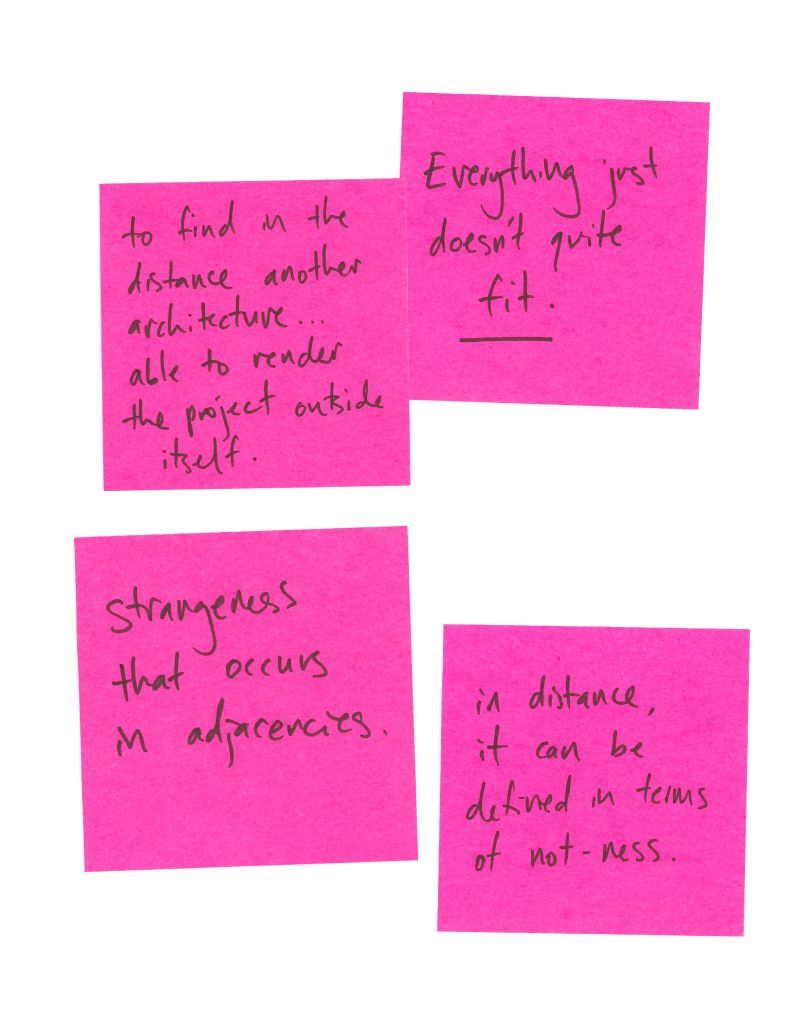 Everything just
doesn't quite
fit.
to find in the
distance another
architecture...
able to render
the project outside
itself.
Strangeness
that occurs
in adjacencies.
in distance,
it can be
defined in terms
of not-ness.